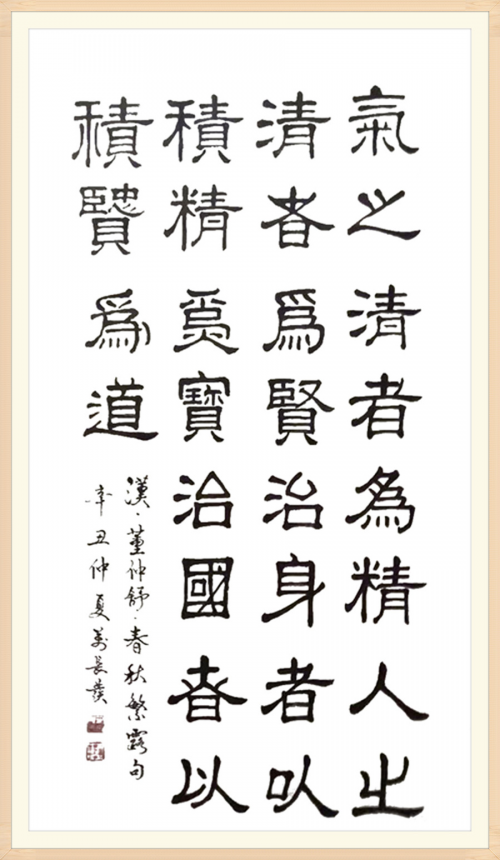 氣之清者為精人之
清者爲賢治身者以
積精爲寶治國者以
積賢爲道
漢·董仲舒·春秋繁露句
辛丑仲夏長